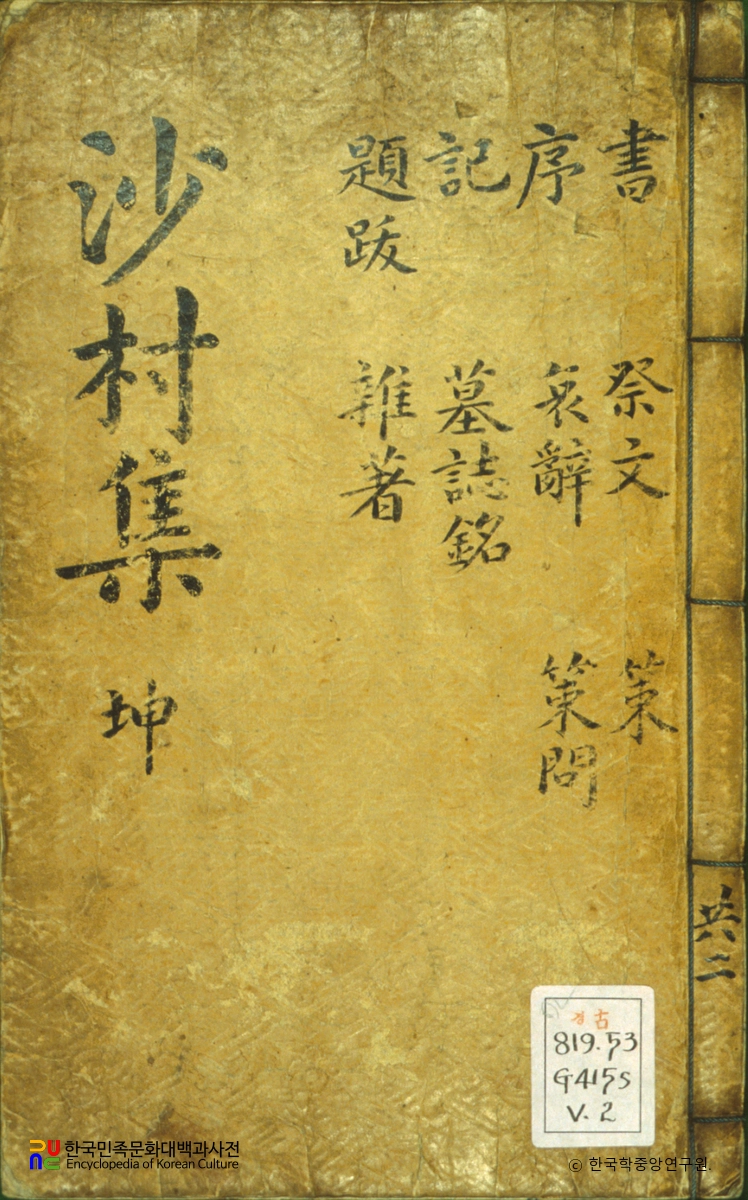 書 祭文 策
序 哀辭 策問
記 墓誌銘
題跋 雜著
沙村集 坤
共二
古
819.53
G415s
V.2
한국민족문화대백과사전
Encyclopedia of Korean Culture
© 한국학중앙연구원